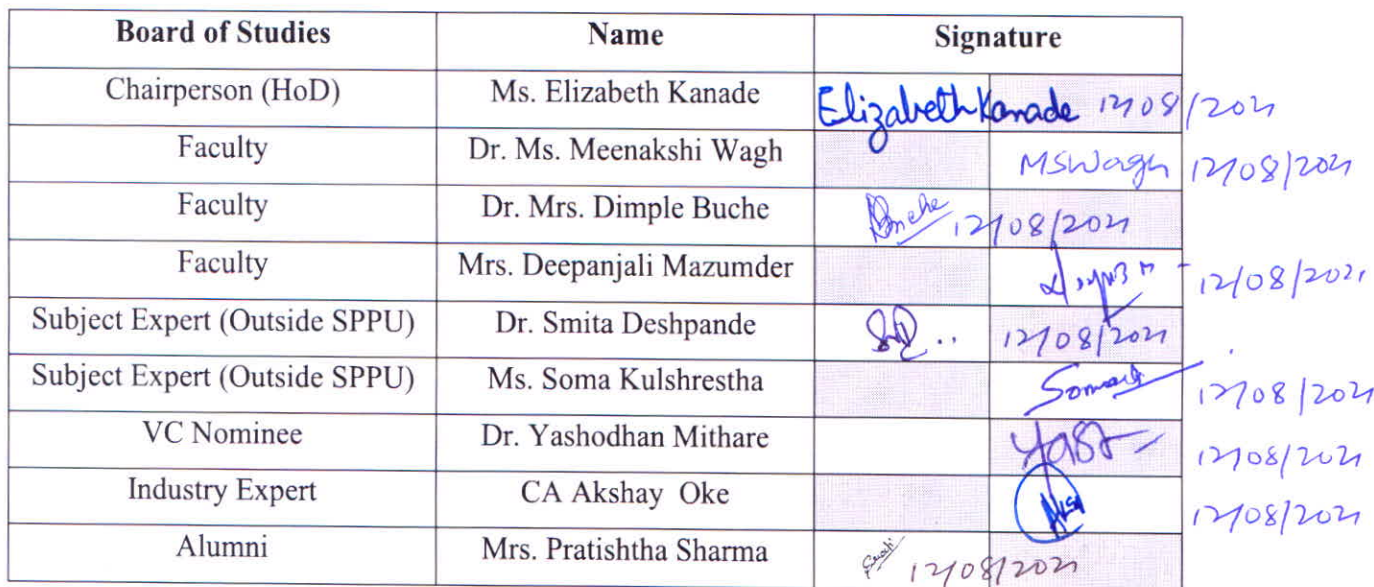 Board of Studies Name Signature
Chairperson (HoD) Ms. Elizabeth Kanade Elizabeth Kanade 12/08/2021
Faculty Dr. Ms. Meenakshi Wagh MSWagh 12/08/2021
Faculty Dr. Mrs. Dimple Buche DBuche 12/08/2021
Faculty Mrs. Deepanjali Mazumder 12/08/2021
Subject Expert (Outside SPPU) Dr. Smita Deshpande 12/08/2021
Subject Expert (Outside SPPU) Ms. Soma Kulshrestha 12/08/2021
VC Nominee Dr. Yashodhan Mithare 12/08/2021
Industry Expert CA Akshay Oke 12/08/2021
Alumni Mrs. Pratishtha Sharma 12/08/2021